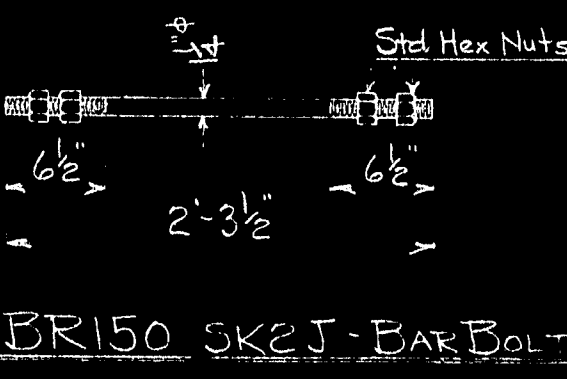 Std Hex Nuts
6½" 6½"
2'-3½"
BR150 SK2J-BAR BOLT